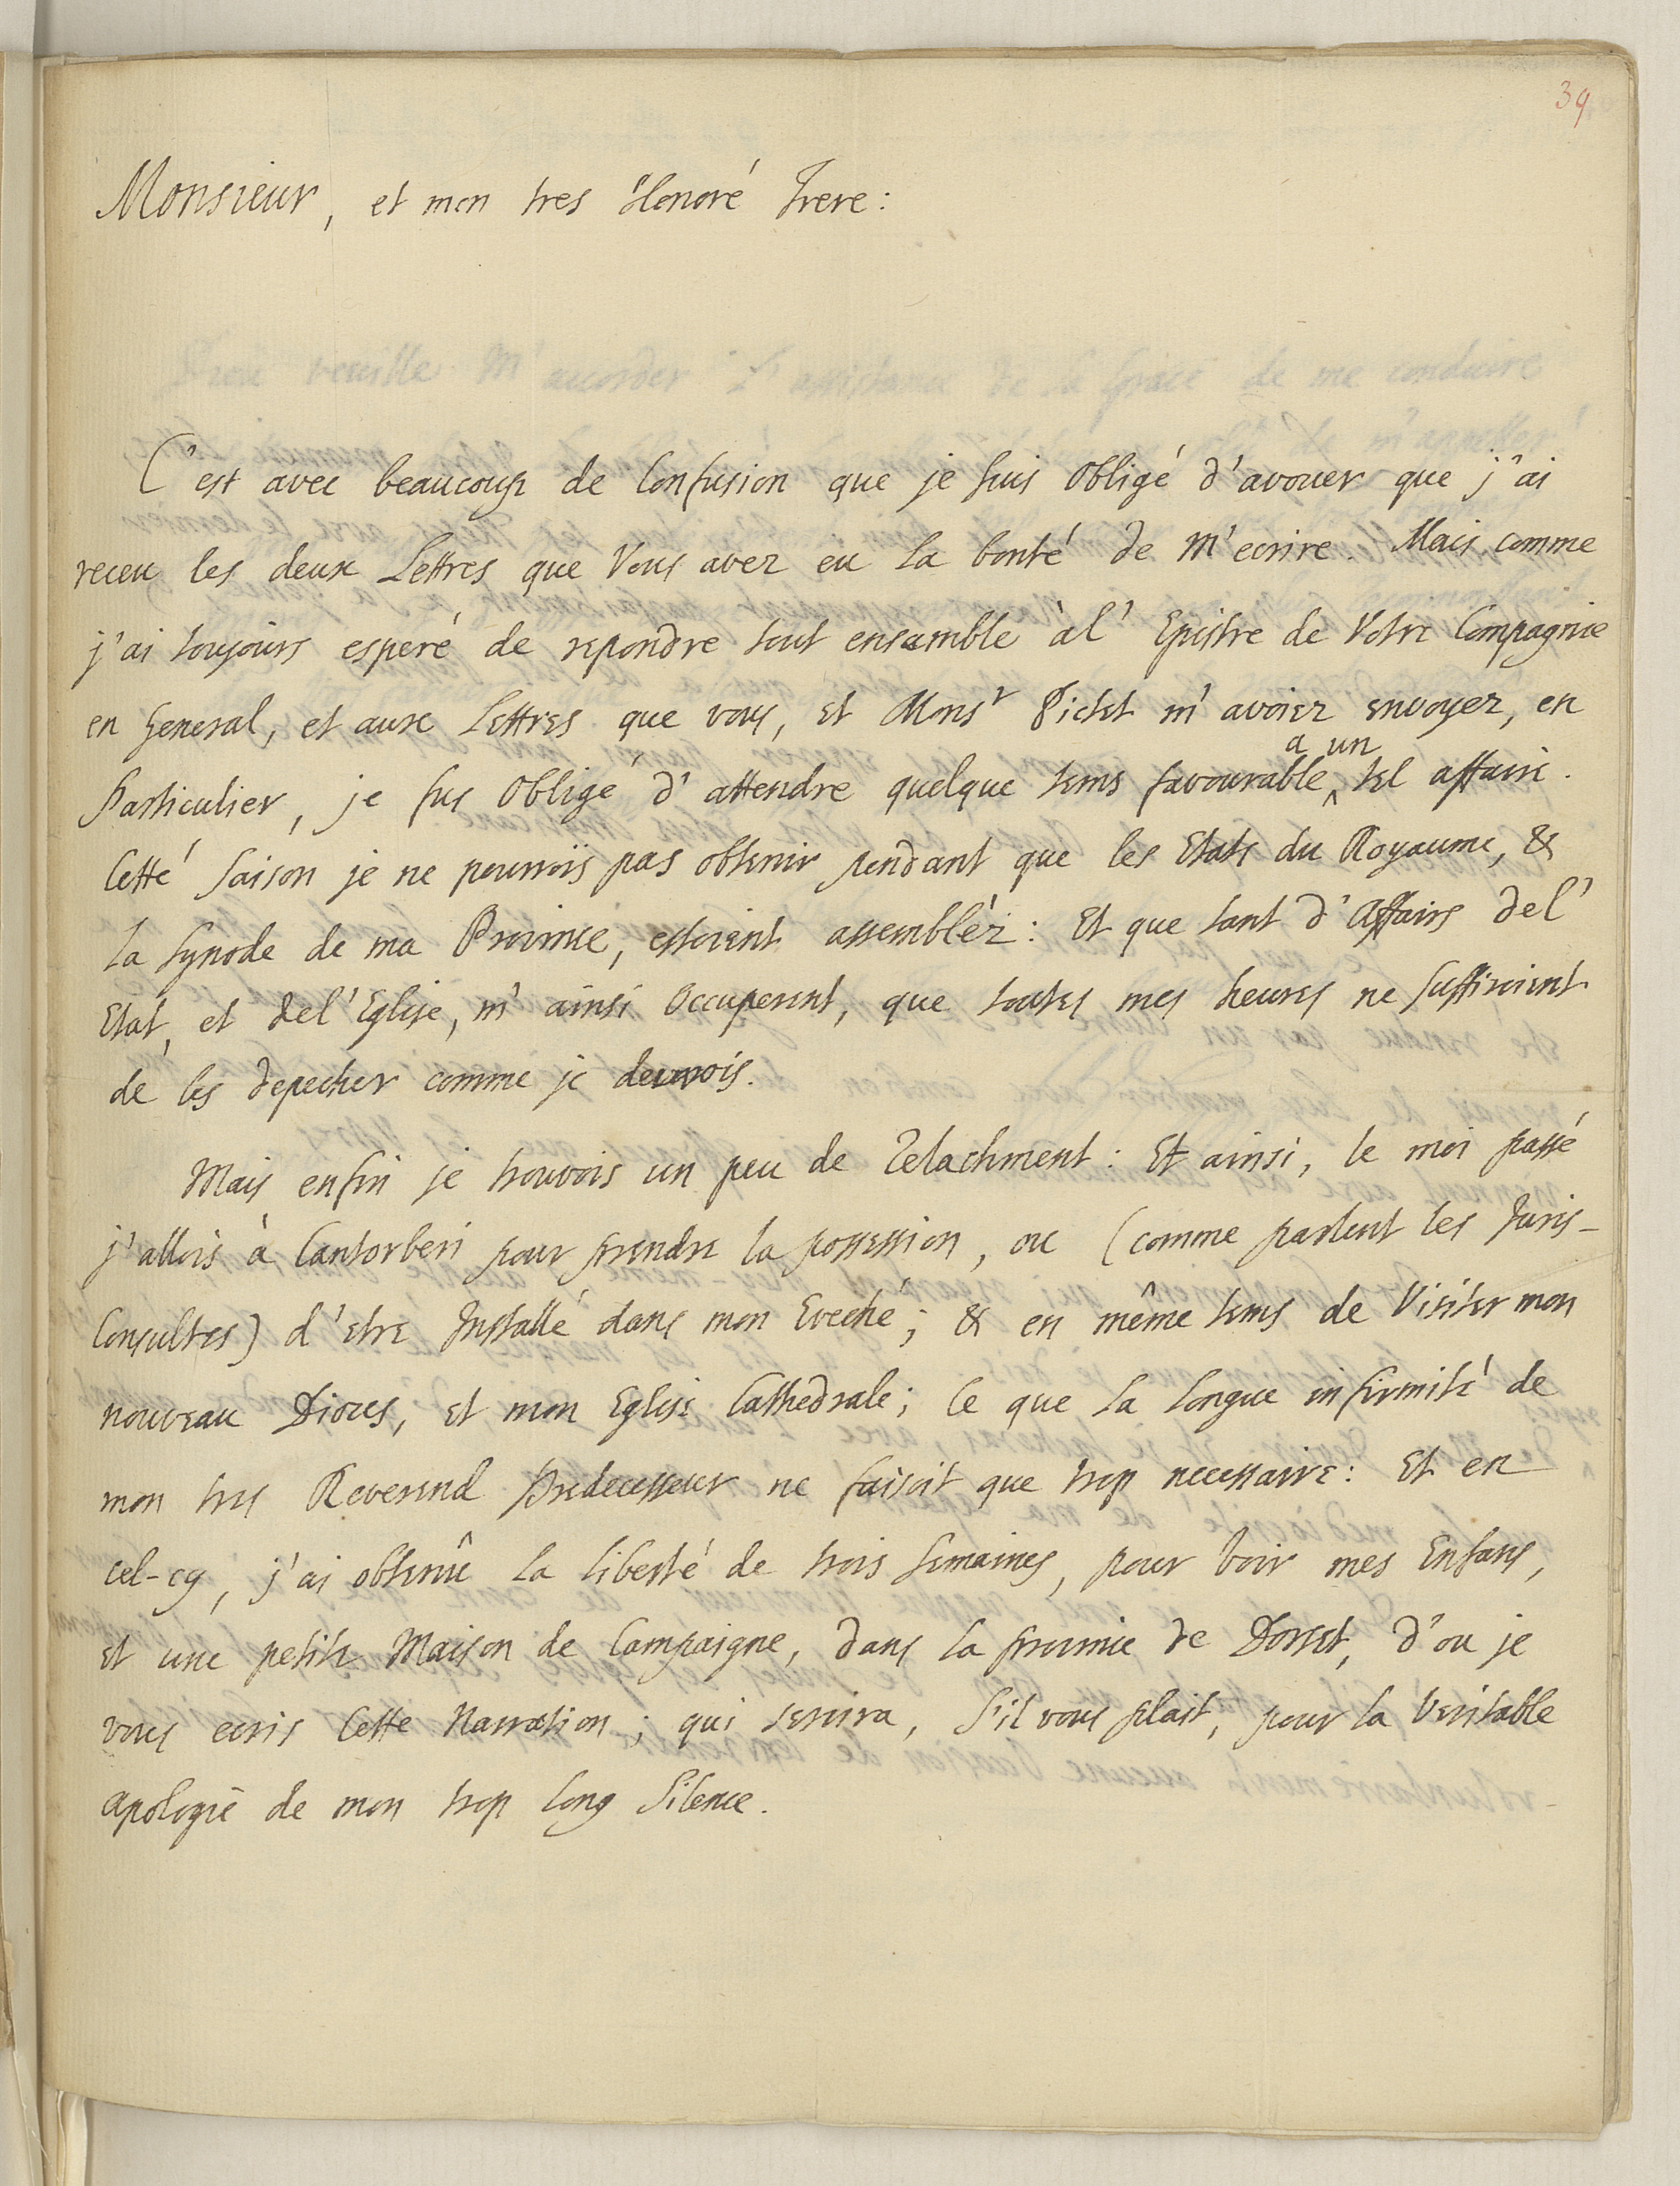 39
Monsieur, et mon tres Honoré Frere:
C'est avec beaucoup de Confusion que je suis Obligé d'avouer que j'ai
receu les deux Lettres que Vous avez eu la bonté de m'ecrire. Mais comme
j'ai toujours esperé de repondre tout ensamble àl' Epistre de Votre Compagnie
en General, et aux Lettres que vous, et Monsr Pictet m'avoiez envoyez, en
Particulier, je fus Obligé d'attendre quelque tems favourable a un tel affaire.
Cetté Saison je ne pourrois pas obtenir pendant que les Etats du Royaume, &
la Synode de ma Province, estoient assemblèz: Et que tant d'Affairs del'
Etat, et del'Eglise, m'ainsi Occuperent, que toutes mes heures ne suffiroient
de les depecher comme je devrois.
Mais enfin je trouvois un peu de Relachment: Et ainsi, le moi passé
j'allois à Cantorberi pour prendre la possession, ou (comme parlent les Juris-
Consultes) d'etre Installé dans mon Eveché; & en même tems de Visiter mon
nouveau Dioces, et mon Eglise Cathedrale; Ce que la longue infirmité de
mon tres Reverend Predecesseur ne faisoit que trop necessaire: Et en
cel-cy, j'ai obtenû la liberté de trois Semaines, pour voir mes Enfans,
et une petite Maison de Campaigne, dans la province de Dorset, d'ou je
vous ecris Cette Narration; qui servira, S'il vous plait, pour la Veritable
apologie de mon trop long Silence.